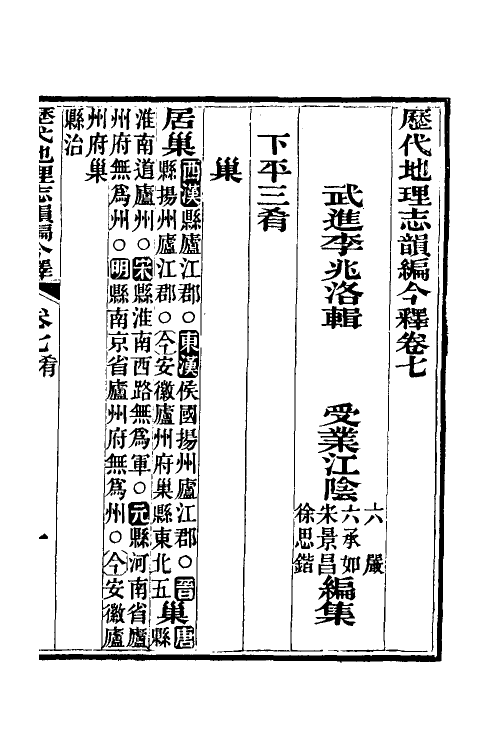 歷代地理志韻編今釋卷七
武進李兆洛輯　受業江陰
六　嚴
六承如
宋景昌
徐思鍇
編集
下平三肴
巢
居巢
西漢縣廬江郡○東漢侯國揚州廬江郡○晉
縣揚州廬江郡○今安徽廬州府巢縣東北五
巢
唐
縣
淮南道廬州○宋縣淮南西路無爲軍○元縣河南省廬
州府無爲州○明縣南京省廬州府無爲州○今安徽廬
州府巢
縣治
歷代地理志韻編今釋　卷七肴　一